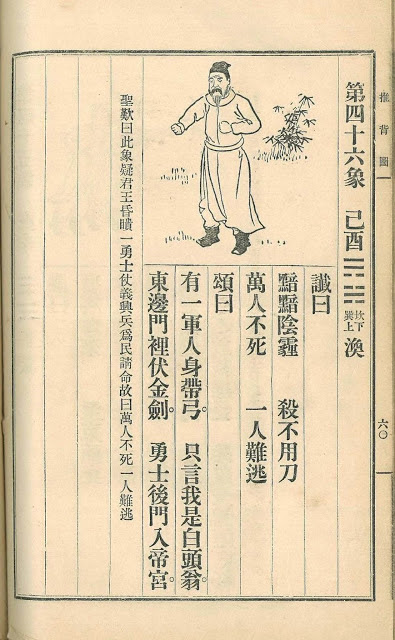 推背圖
六〇
第四十六象 己酉 ䷺ 坎下巽上 渙
讖曰
黯黯陰霾 殺不用刀
萬人不死 一人難逃
頌曰
有一軍人身帶弓。 只言我是白頭翁。
東邊門裡伏金劍。 勇士後門入帝宮。
聖歎曰此象疑君王昏瞶一勇士仗義興兵為民請命故曰萬人不死一人難逃